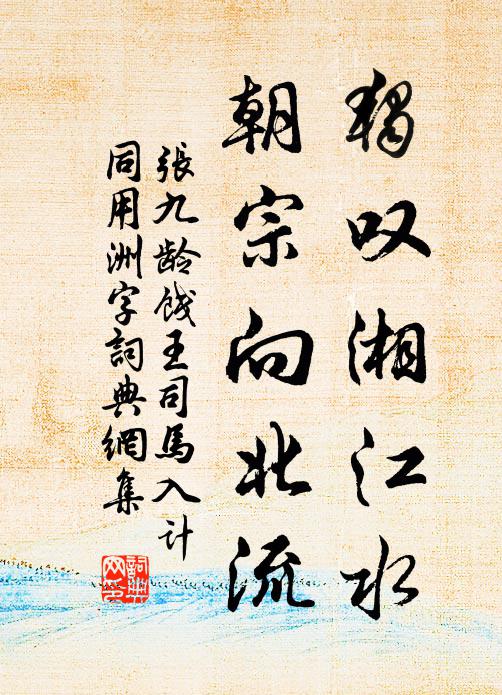 独叹湘江水
朝宗向北流
張九龄饯王司馬入计
同用洲字詞典網集